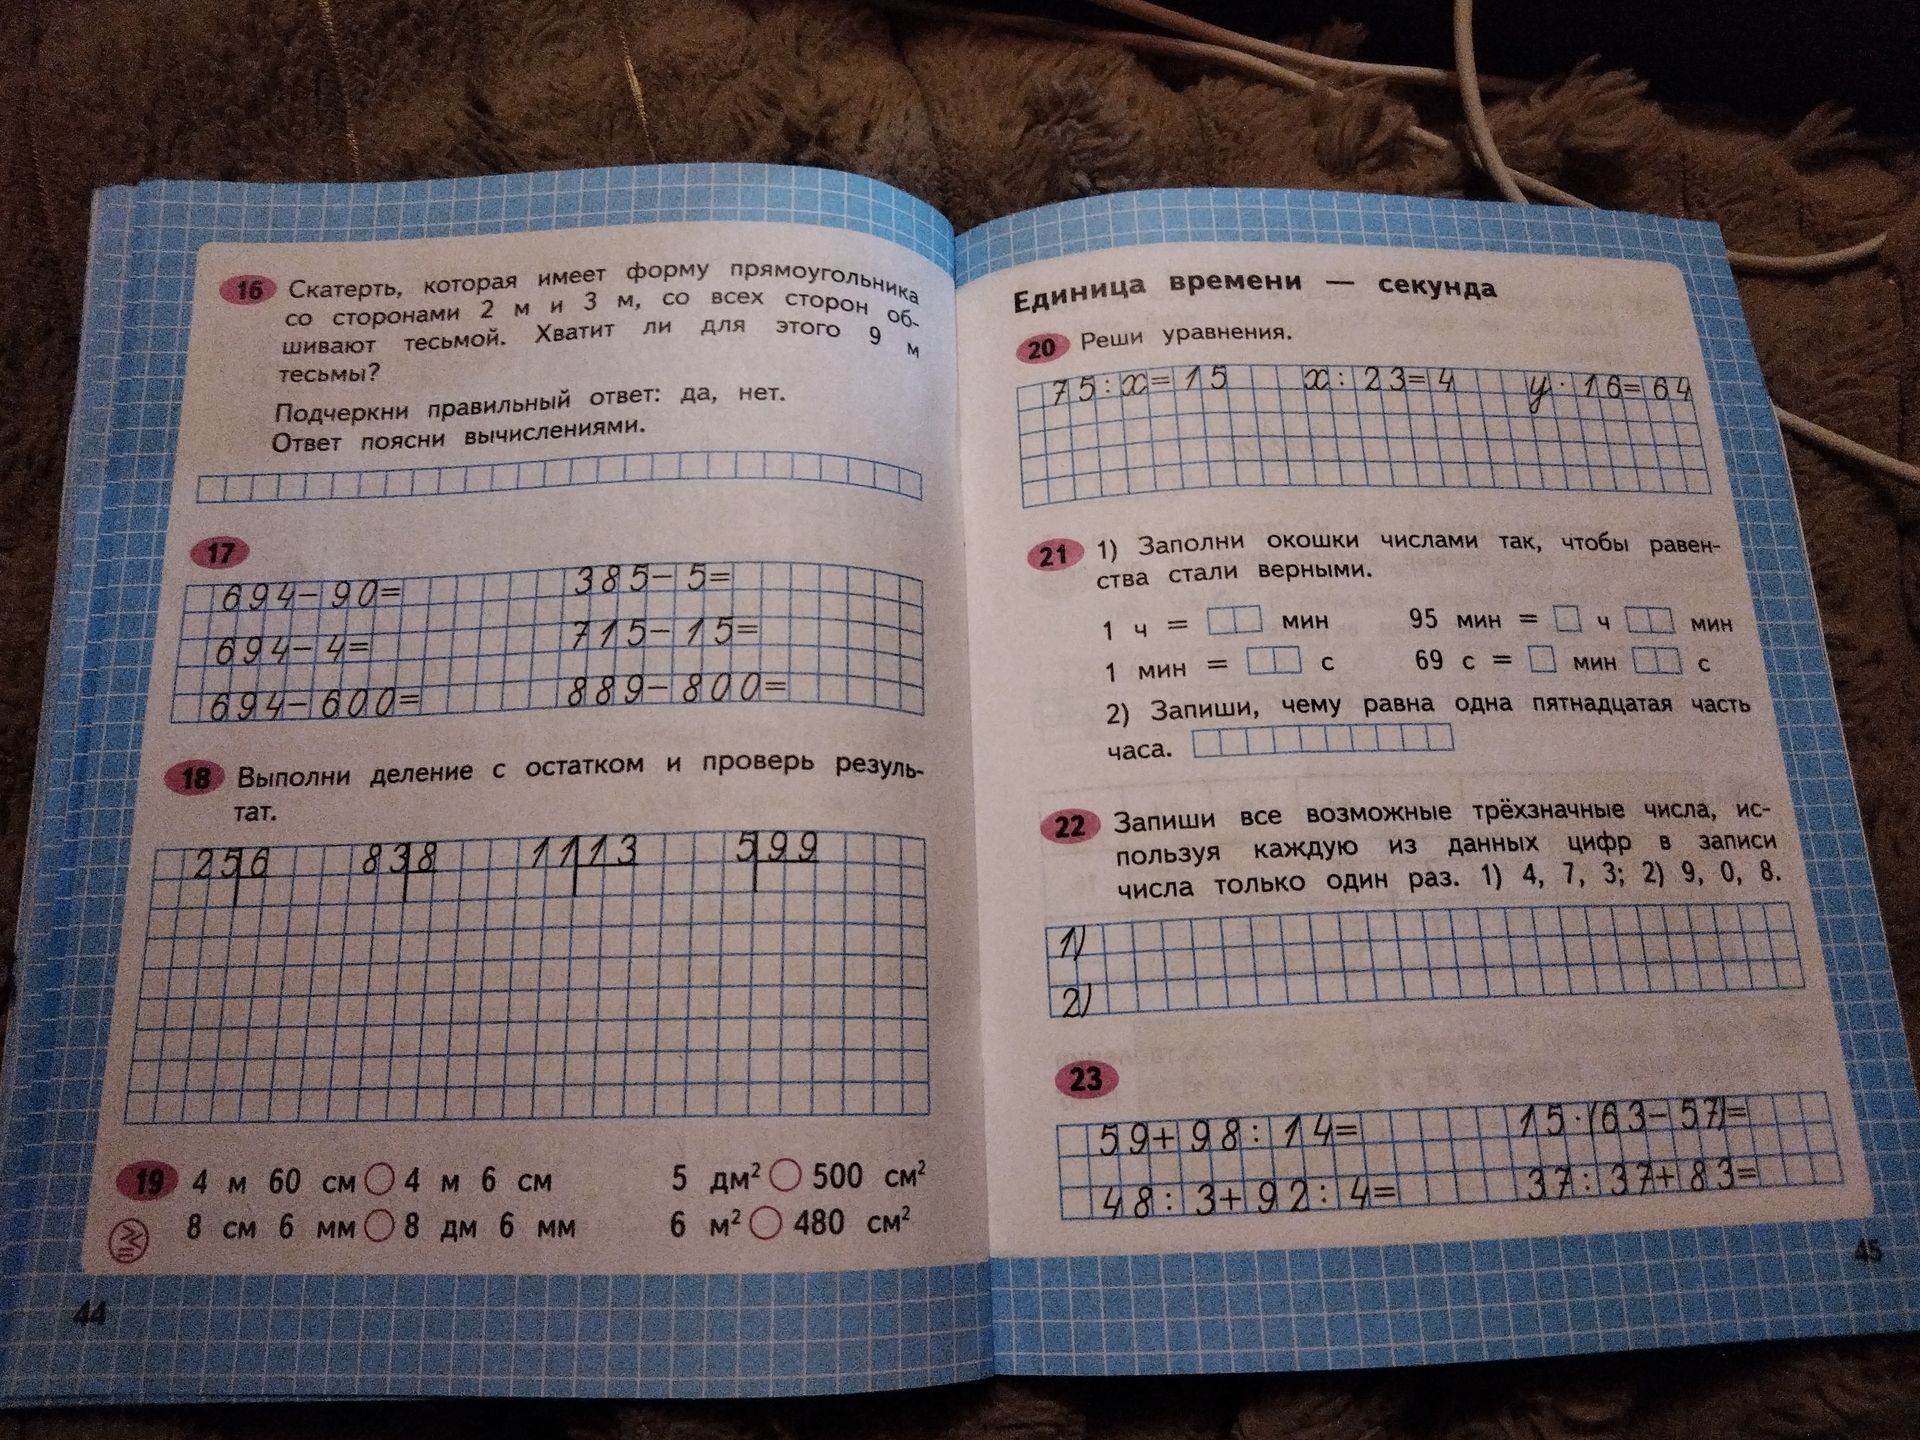 16 Скатерть, которая имеет форму прямоугольника
со сторонами 2 м и 3 м, со всех сторон об-
шивают тесьмой. Хватит ли для этого 9 м
тесьмы?
Подчеркни правильный ответ: да, нет.
Ответ поясни вычислениями.
17
694-90= 385-5=
694-4= 715-15=
694-600= 889-800=
18 Выполни деление с остатком и проверь резуль-
тат.
25|6 83|8 11|13 5|99
19 4 м 60 см ○ 4 м 6 см 5 дм² ○ 500 см²
8 см 6 мм ○ 8 дм 6 мм 6 м² ○ 480 см²
44
Единица времени — секунда
20 Реши уравнения.
75:x=15 x:23=4 y·16=64
21 1) Заполни окошки числами так, чтобы равен-
ства стали верными.
1 ч = □□ мин 95 мин = □ ч □□ мин
1 мин = □□ с 69 с = □ мин □□ с
2) Запиши, чему равна одна пятнадцатая часть
часа.
22 Запиши все возможные трёхзначные числа, ис-
пользуя каждую из данных цифр в записи
числа только один раз. 1) 4, 7, 3; 2) 9, 0, 8.
1)
2)
23
59+98:14= 15·(63-57)=
48:3+92:4= 37:37+83=
45